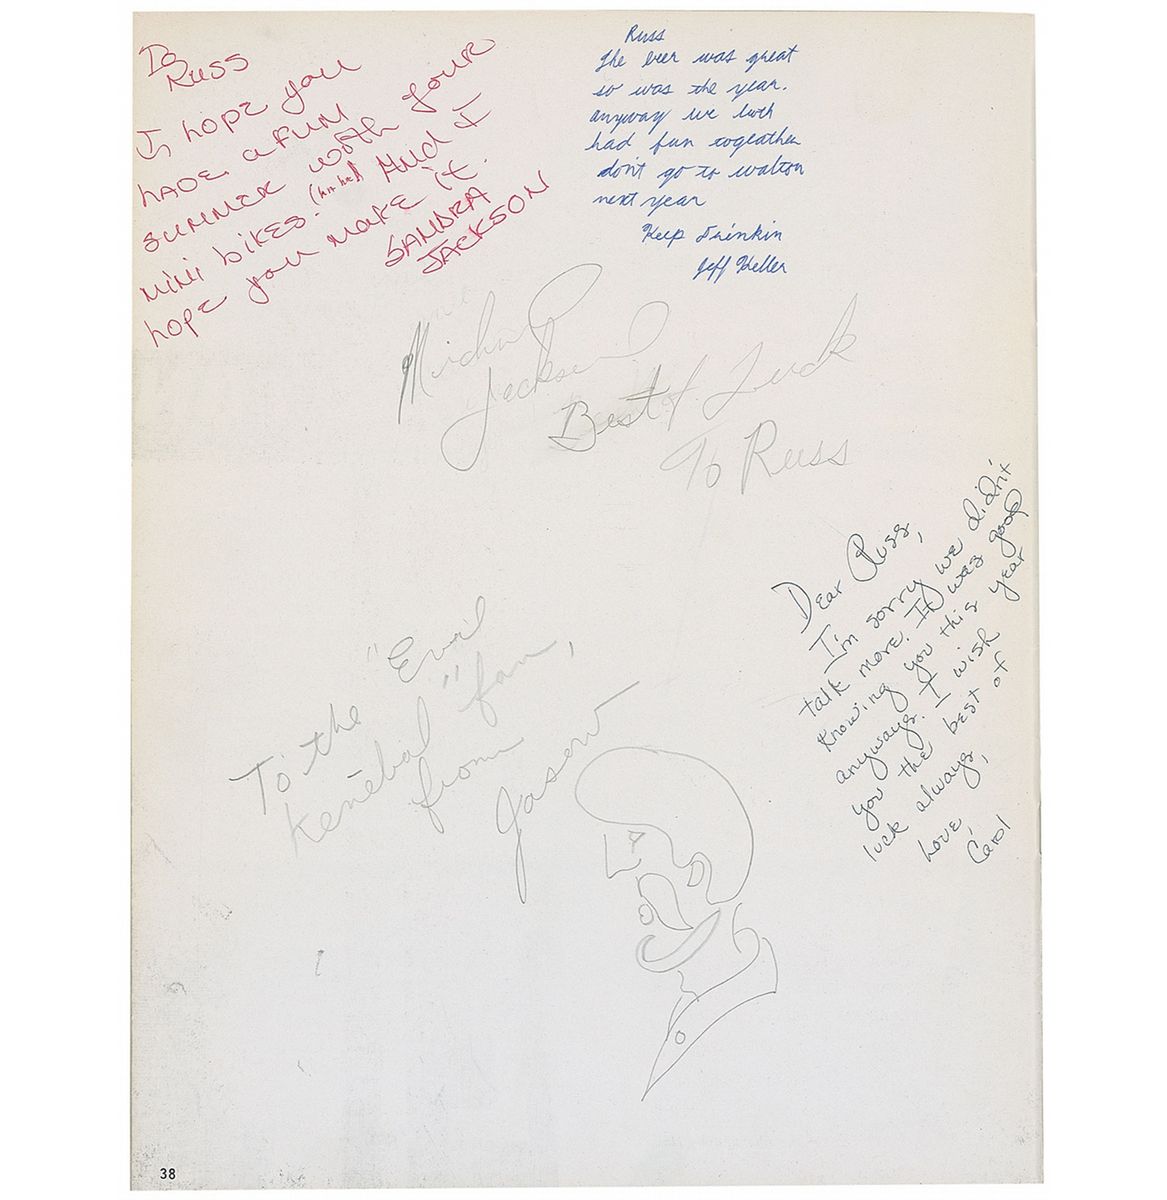 To
Russ
I hope you
have a fun
summer with your
mini bikes. (ha ha) And I
hope you make it.
SANDRA
JACKSON
Russ
The beer was great
so was the year.
anyway we both
had fun togeather
don't go to walton
next year
Keep Drinkin
Jeff Heller
Michael
Jackson
Best of Luck
To Russ
Dear Russ,
I'm sorry we didn't
talk more. It was good
knowing you this year
anyways. I wish
you the best of
luck always,
Love,
Carol
To the "Eval
Kenebal" fan,
from
Jason
38